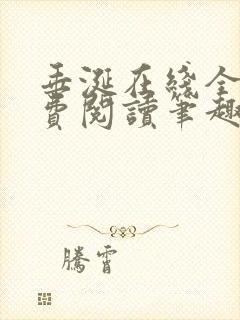 垂涎在綫全
費閱讀筆趣
騰霄